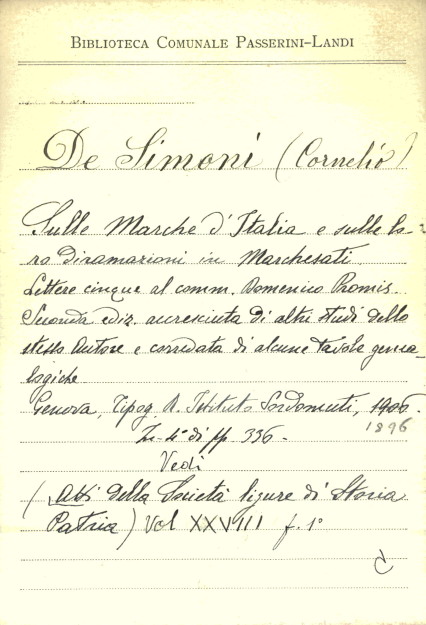 BIBLIOTECA COMUNALE PASSERINI-LANDI
De Simoni (Cornelio)
Sulle Marche d'Italia e sulle lo-
ro diramazioni in Marchesati
Lettere cinque al comm. Domenico Promis.
Seconda ediz. accresciuta di altri studi dello
stesso Autore e corredata di alcune tavole genea-
logiche
Genova, Tipog. R. Istituto Sordomuti, 1906.
1896
In-4° di pp. 336.
Vedi
(Atti della Società ligure di Storia
Patria) Vol XXVIII f. 1°